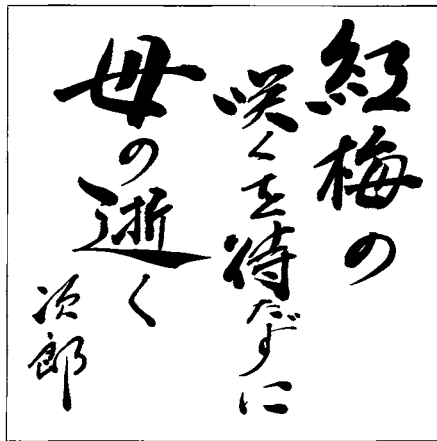 紅梅の
咲くを待たずに
母の逝く
次郎